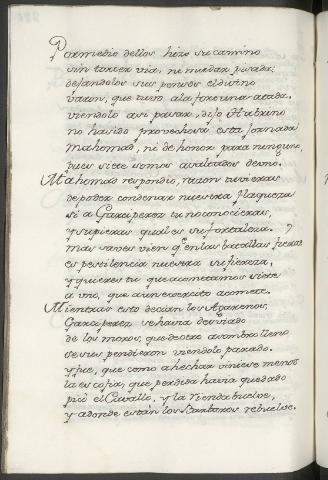 Por medio dellos hizo su camino
sin torcer via, ni mudar pisada:
dejandolos suspensos el divino
varon, que tuvo ala fortuna atada.
viendolo asi pasar, dijo Habrino
no ha sido provechosa esta jornada
Mahomad, ni de honor para ninguno,
pues siete somos avaltados de uno.
Mahomad respondio, razon tuvieras
de poder condenar nuestra flaqueza
si a Garciperez tu no conocieras,
y supieras qual es su fortaleza.
mas saves vien q en las batallas fieras
es pestilencia nuestra su fiereza,
y quieres tu que acometamos siete
a uno, que a un exercito acomete.
Mientras esto decian los Agarenos,
Garciperez se havia desviado
de los moros, que de este asombro llenos
se suspendieron viendolo parado.
y fue, que como a hechar viniese menos
la escofia, que perdida havia quedado
picò el Cavallo, y la rienda buelve,
y adonde estàn los Barbaros rebuelve.